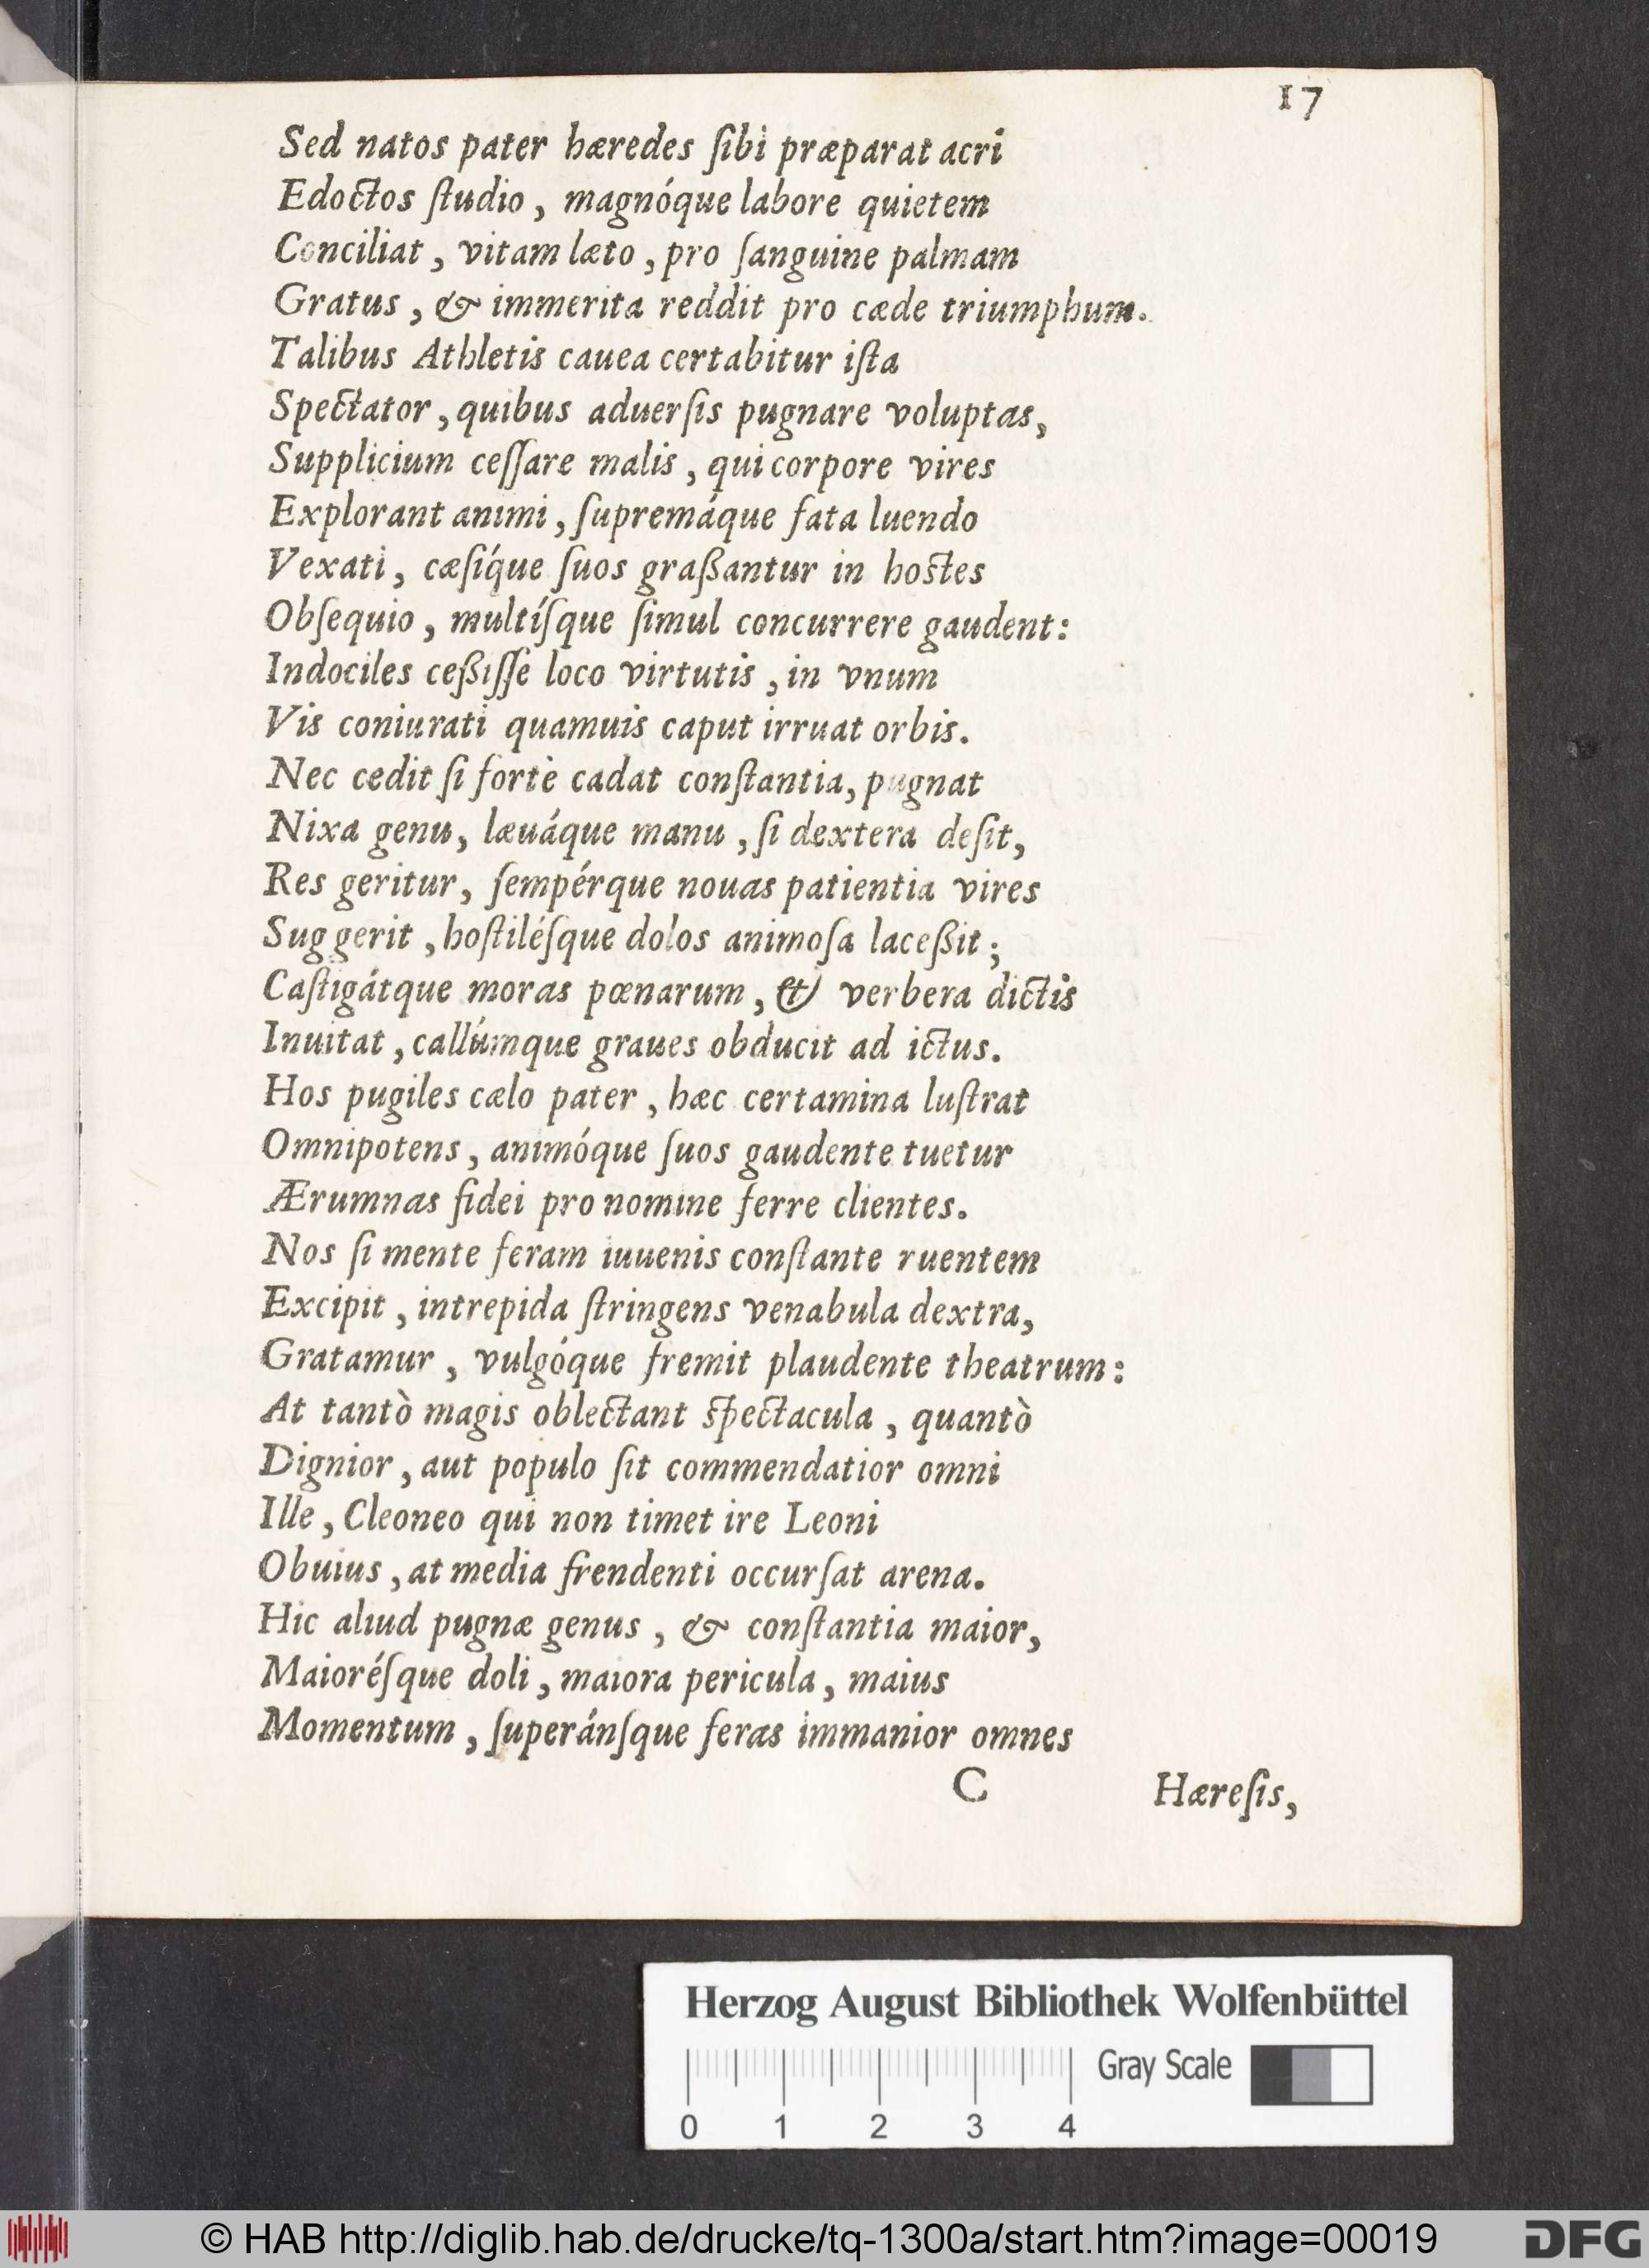 17
Sed natos pater hæredes ſibi præparat acri
Edoctos ſtudio, magnóque labore quietem
Conciliat, vitam læto, pro ſanguine palmam
Gratus, & immerita reddit pro cæde triumphum.
Talibus Athletis cauea certabitur iſta
Spectator, quibus aduerſis pugnare voluptas,
Supplicium ceſſare malis, qui corpore vires
Explorant animi, ſupremáque fata luendo
Vexati, cæſíque ſuos graßantur in hostes
Obſequio, multíſque ſimul concurrere gaudent:
Indociles ceßiſſe loco virtutis, in vnum
Vis coniurati quamuis caput irruat orbis.
Nec cedit ſi fortè cadat conſtantia, pugnat
Nixa genu, læuáque manu, ſi dextera deſit,
Res geritur, ſempérque nouas patientia vires
Suggerit, hoſtiléſque dolos animoſa laceßit;
Caſtigátque moras pœnarum, & verbera dictis
Inuitat, callúmque graues obducit ad ictus.
Hos pugiles cælo pater, hæc certamina luſtrat
Omnipotens, animóque ſuos gaudente tuetur
Ærumnas fidei pro nomine ferre clientes.
Nos ſi mente feram iuuenis conſtante ruentem
Excipit, intrepida ſtringens venabula dextra,
Gratamur, vulgóque fremit plaudente theatrum:
At tantò magis oblectant spectacula, quantò
Dignior, aut populo ſit commendatior omni
Ille, Cleoneo qui non timet ire Leoni
Obuius, at media frendenti occurſat arena.
Hic aliud pugnæ genus, & conſtantia maior,
Maioréſque doli, maiora pericula, maius
Momentum, ſuperánſque feras immanior omnes
C Hæreſis,
Herzog August Bibliothek Wolfenbüttel
Gray Scale
0 1 2 3 4
© HAB http://diglib.hab.de/drucke/tq-1300a/start.htm?image=00019
DFG